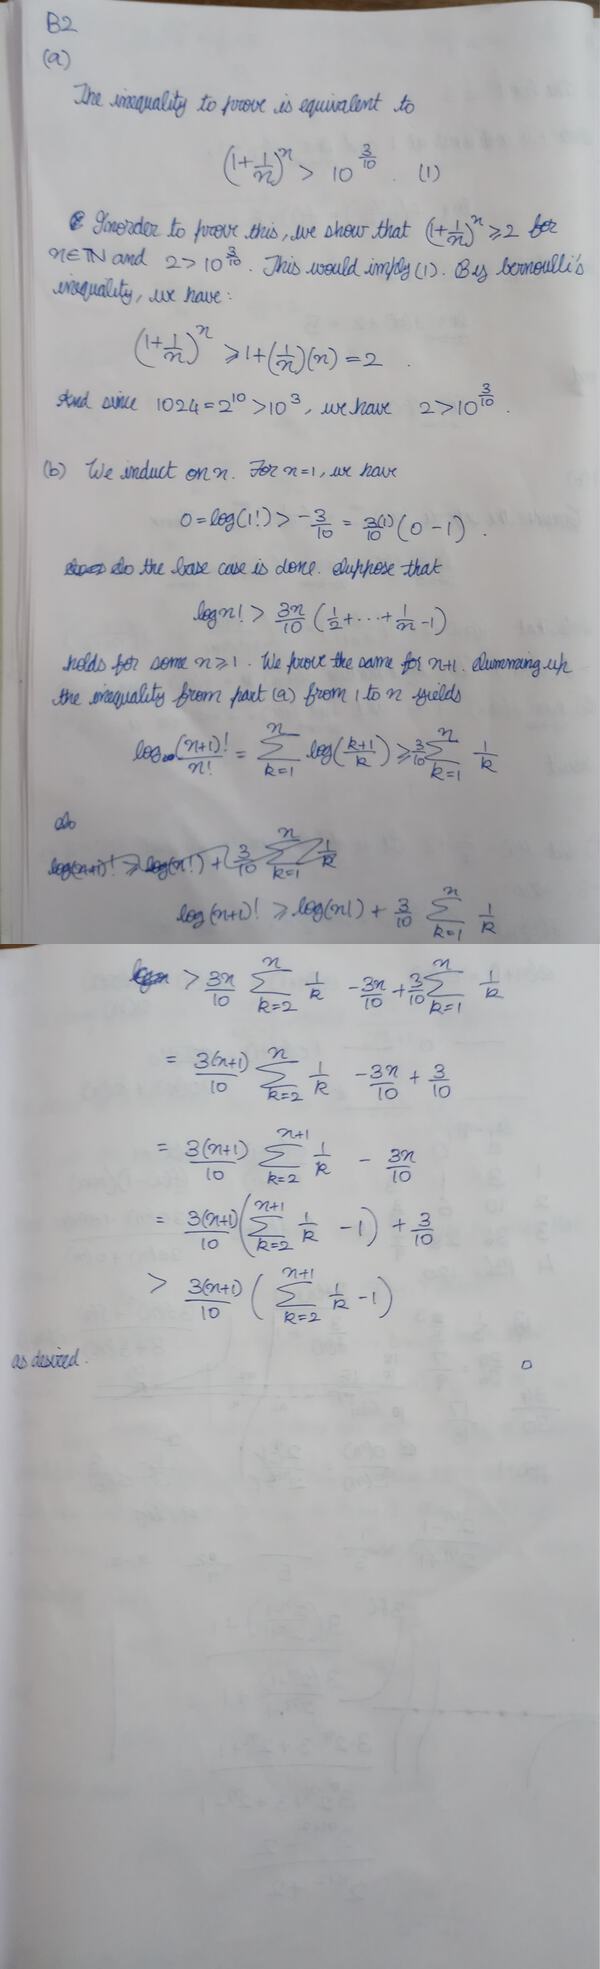 B2
(a)
The inequality to prove is equivalent to
(1+1/n)^n > 10^(3/10) . (1)
Inorder to prove this, we show that (1+1/n)^n ⩾ 2 for
n∈ℕ and 2 > 10^(3/10). This would imply (1). By bernoulli's
inequality, we have:
(1+1/n)^n ⩾ 1+(1/n)(n) = 2 .
And since 1024 = 2^10 > 10^3, we have 2 > 10^(3/10) .
(b) We induct on n. For n=1, we have
0 = log(1!) > -3/10 = 3(1)/10 (0-1) .
So the base case is done. Suppose that
log n! > 3n/10 (1/2 + ⋯ + 1/n - 1)
holds for some n⩾1. We prove the same for n+1. Summing up
the inequality from part (a) from 1 to n yields
log (n+1)!/n! = ∑_{k=1}^{n} log((k+1)/k) ⩾ 3/10 ∑_{k=1}^{n} 1/k
So
log(n+1)! ⩾ log(n!) + 3/10 ∑_{k=1}^{n} 1/k
log(n+1)! ⩾ log(n!) + 3/10 ∑_{k=1}^{n} 1/k
> 3n/10 ∑_{k=2}^{n} 1/k - 3n/10 + 3/10 ∑_{k=1}^{n} 1/k
= 3(n+1)/10 ∑_{k=2}^{n} 1/k - 3n/10 + 3/10
= 3(n+1)/10 ∑_{k=2}^{n+1} 1/k - 3n/10
= 3(n+1)/10 (∑_{k=2}^{n+1} 1/k - 1) + 3/10
> 3(n+1)/10 (∑_{k=2}^{n+1} 1/k - 1)
as desired. □